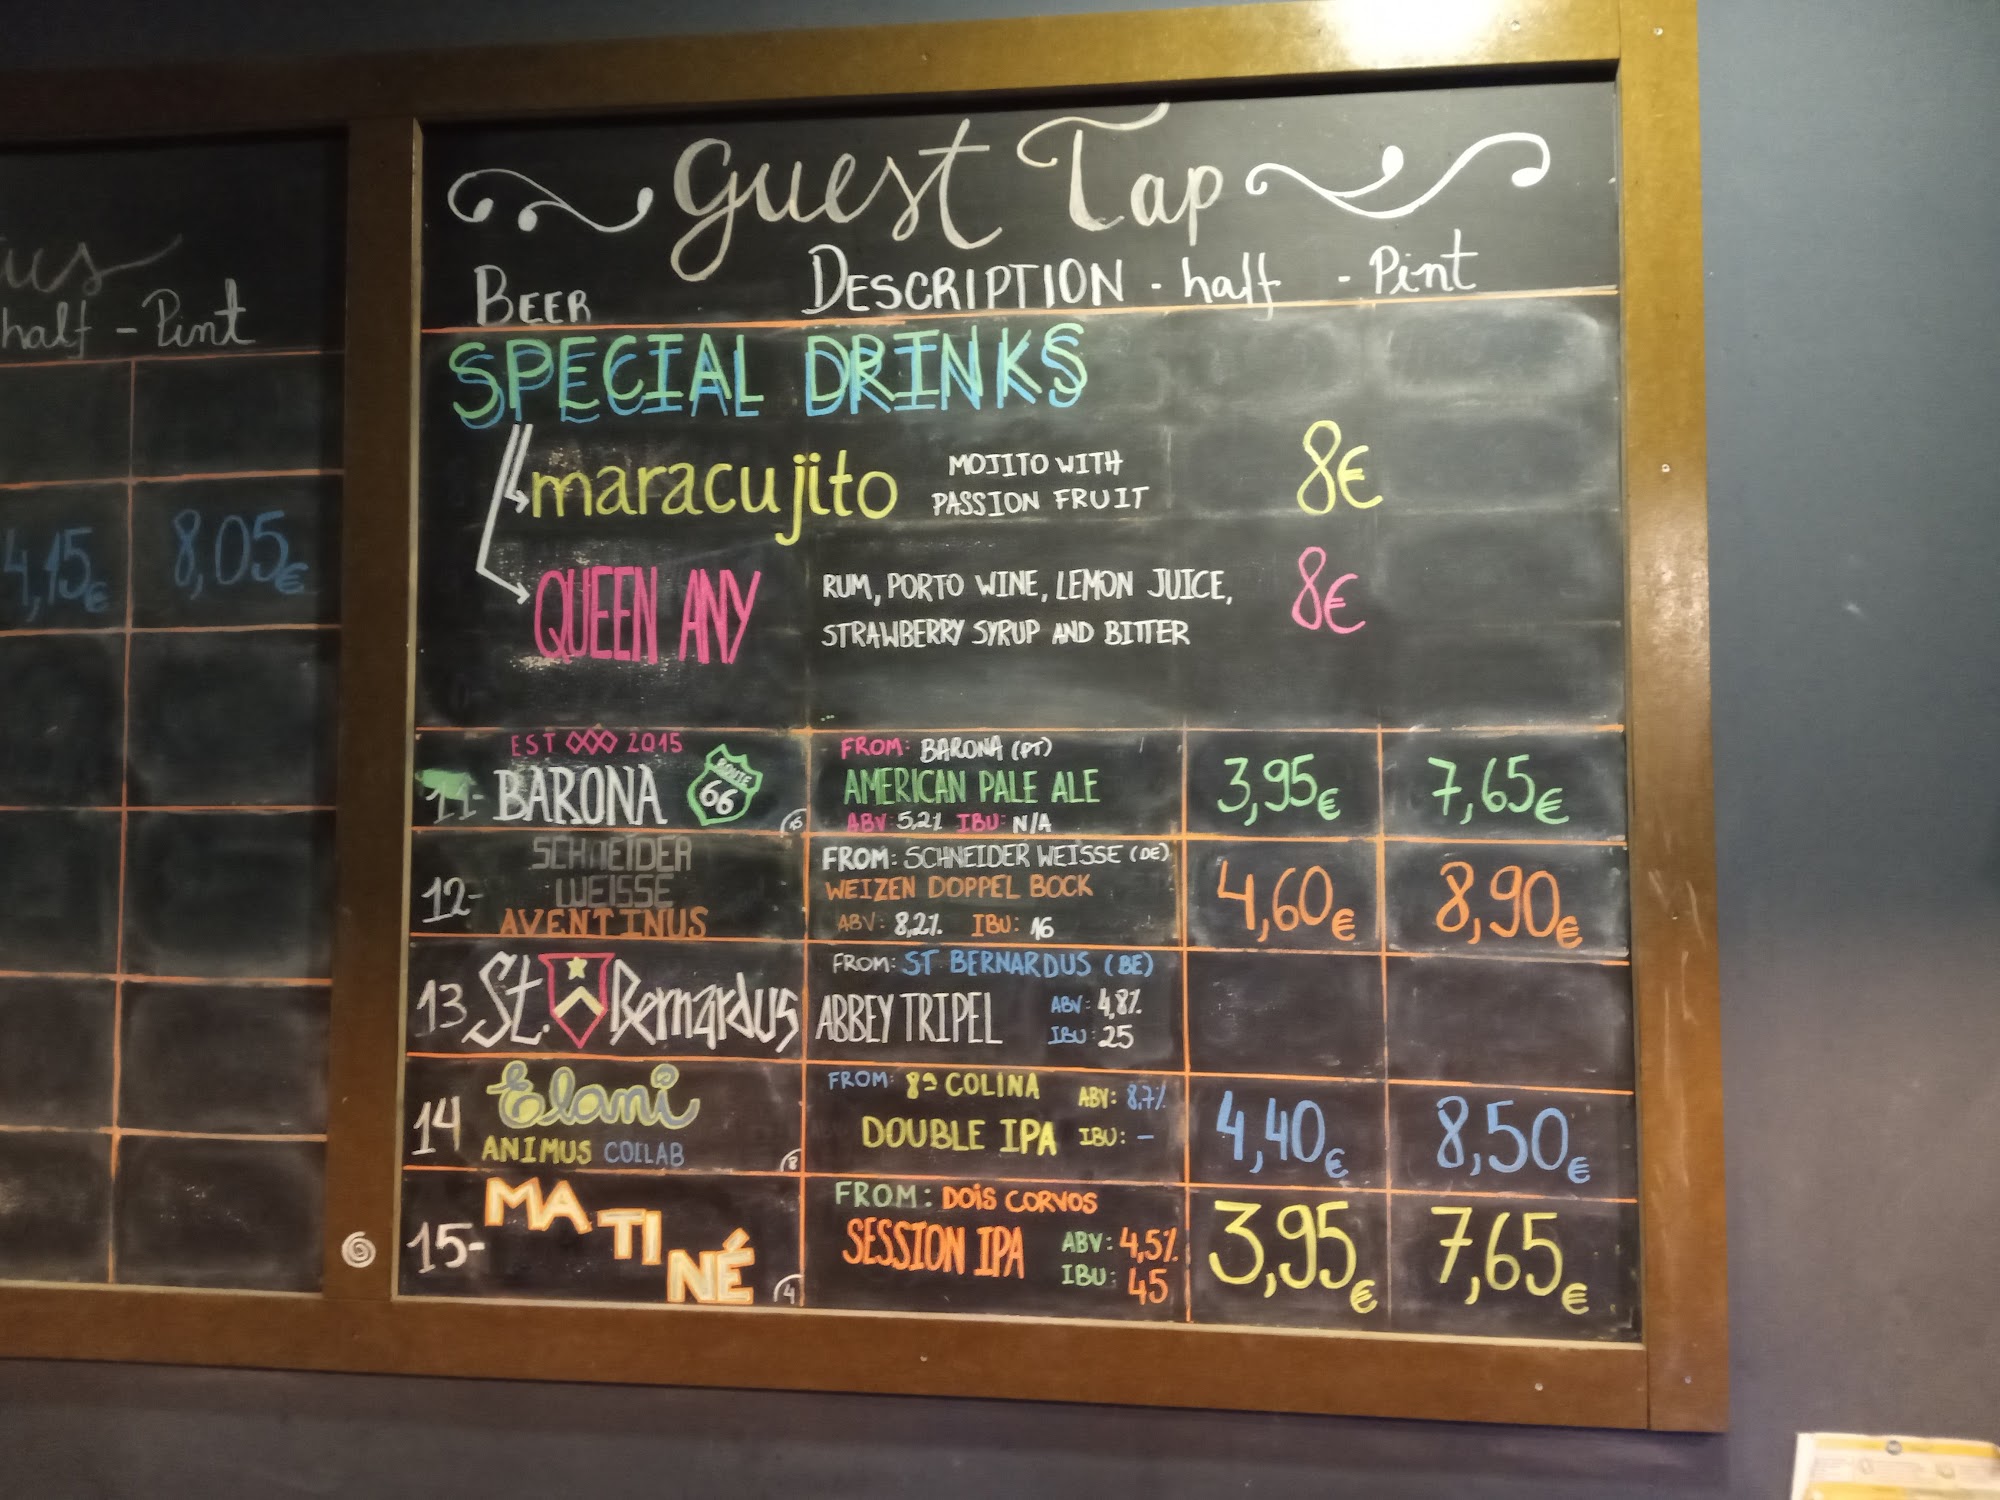 half - Pint
4,15€ 8,05€
Guest Tap
BEER DESCRIPTION - half - Pint
SPECIAL DRINKS
maracujito MOJITO WITH PASSION FRUIT 8€
QUEEN ANY RUM, PORTO WINE, LEMON JUICE, 8€
STRAWBERRY SYRUP AND BITTER
EST 2015
11- BARONA ROUTE 66
FROM: BARONA (PT)
AMERICAN PALE ALE
ABV: 5,2% IBU: N/A
3,95€ 7,65€
12- SCHNEIDER
WEISSE
AVENTINUS
FROM: SCHNEIDER WEISSE (DE)
WEIZEN DOPPEL BOCK
ABV: 8,2% IBU: 16
4,60€ 8,90€
13 St. Bernardus
FROM: ST BERNARDUS (BE)
ABBEY TRIPEL ABV: 4,8%
IBU: 25
14 Elani
ANIMUS COLLAB
8
FROM: 8ª COLINA ABV: 8,7%
DOUBLE IPA IBU: -
4,40€ 8,50€
15- MATINÉ
4
FROM: DOIS CORVOS
SESSION IPA ABV: 4,5%
IBU: 45
3,95€ 7,65€